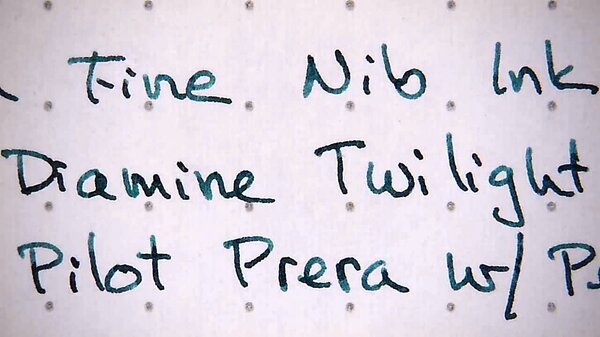 Fine Nib Ink
Diamine Twilight
Pilot Prera w/